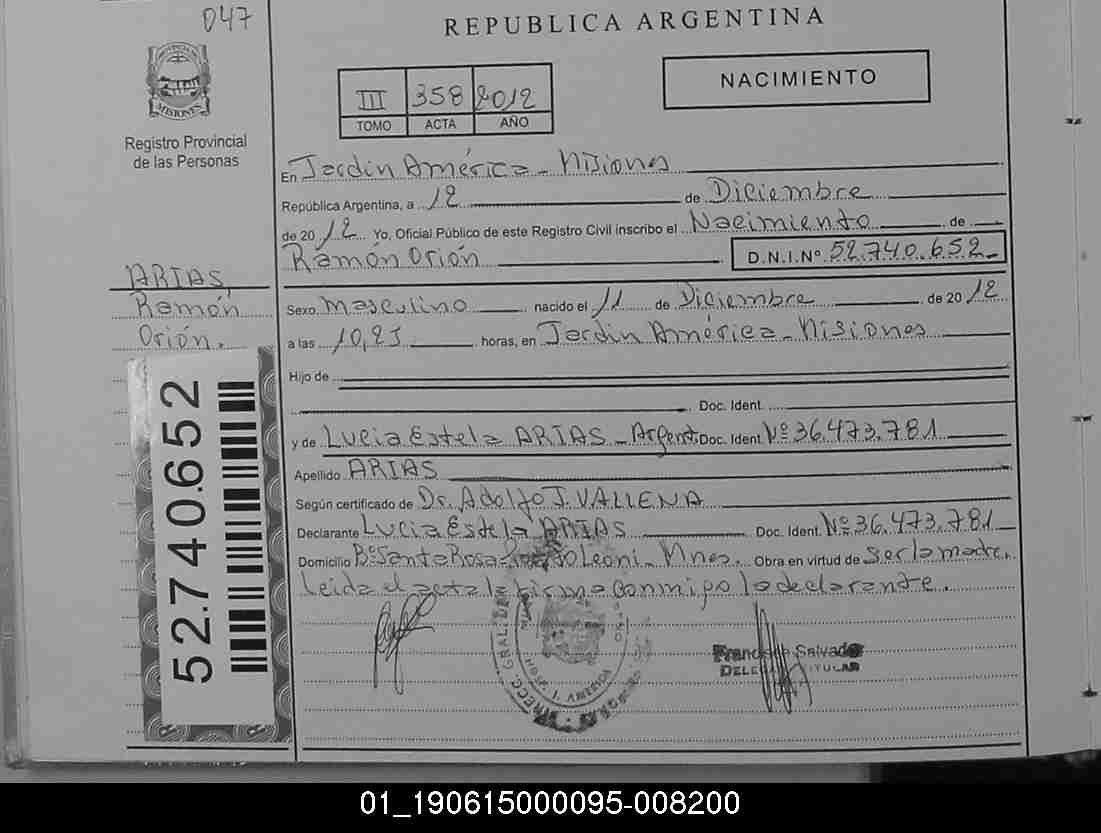 047
REPUBLICA ARGENTINA
PROVINCIA DE
MISIONES
Registro Provincial
de las Personas
III 358 2012
TOMO ACTA AÑO
NACIMIENTO
En Jardín América - Misiones
República Argentina, a 12 de Diciembre
de 2012 Yo, Oficial Público de este Registro Civil inscribo el Nacimiento de
Ramón Orión D.N.I.Nº 52.740.652
ARIAS,
Ramón
Orión.
Sexo masculino nacido el 11 de Diciembre de 2012
a las 10,25 horas, en Jardín América - Misiones
Hijo de
Doc. Ident.
y de Lucia Estela ARIAS - Argent. Doc. Ident. Nº 36.473.781
Apellido ARIAS
Según certificado de Dr. Adolfo J. VALLENA
Declarante Lucia Estela ARIAS Doc. Ident. Nº 36.473.781
Domicilio Bº Santa Rosa Leoni - Mnes. Obra en virtud de ser la madre.
Leida el acta la firma conmigo la declarante.
52.740.652
HOSP. J. AMERICA
Francisco Salvado
DELE TITULAR
01_190615000095-008200